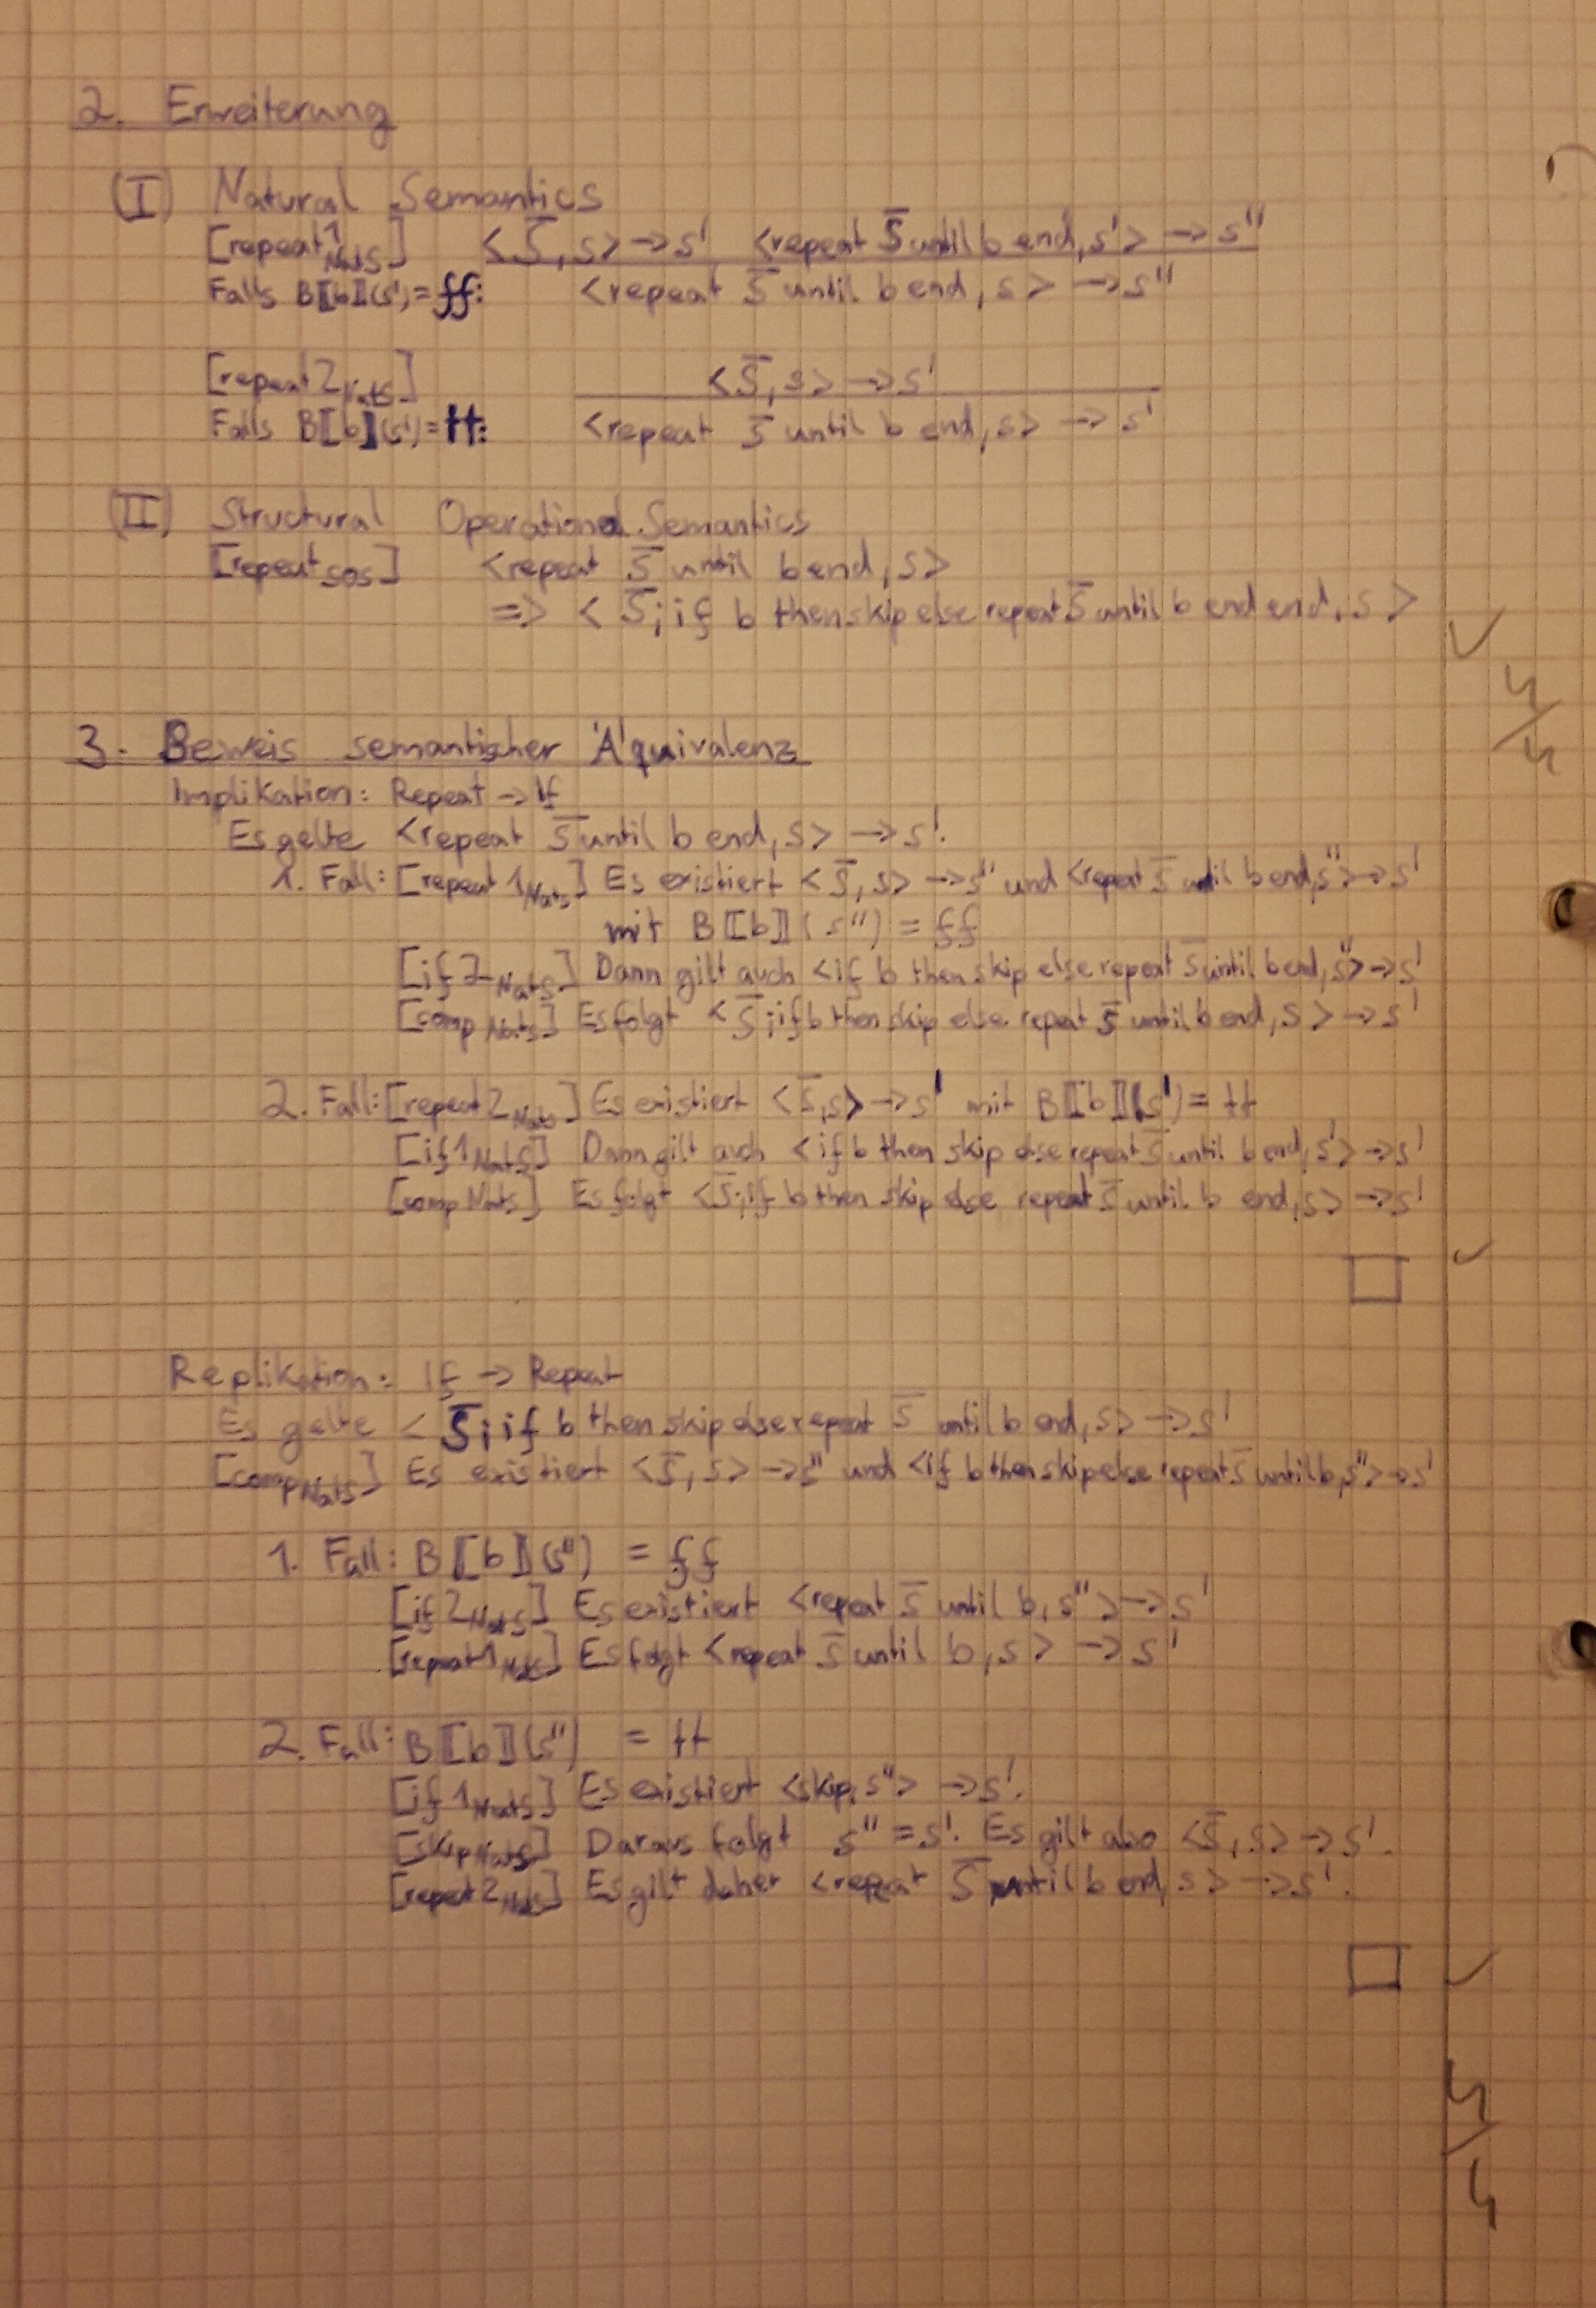 2. Erweiterung
(I) Natural Semantics
[repeat1_NatS] <S̅, s> → s' <repeat S̅ until b end, s'> → s''
Falls B⟦b⟧(s') = ff: <repeat S̅ until b end, s> → s''
[repeat2_NatS] <S̅, s> → s'
Falls B⟦b⟧(s') = tt: <repeat S̅ until b end, s> → s'
(II) Structural Operational Semantics
[repeat_SOS] <repeat S̅ until b end, s>
=> <S̅; if b then skip else repeat S̅ until b end end, s>
✓
4/4
3. Beweis semantischer Äquivalenz
Implikation: Repeat → If
Es gelte <repeat S̅ until b end, s> → s'.
1. Fall: [repeat1_NatS] Es existiert <S̅, s> → s'' und <repeat S̅ until b end, s''> → s'
mit B⟦b⟧(s'') = ff
[if2_NatS] Dann gilt auch <if b then skip else repeat S̅ until b end, s''> → s'
[comp_NatS] Es folgt <S̅; if b then skip else repeat S̅ until b end, s> → s'
2. Fall: [repeat2_NatS] Es existiert <S̅, s> → s' mit B⟦b⟧(s') = tt
[if1_NatS] Dann gilt auch <if b then skip else repeat S̅ until b end, s'> → s'
[comp NatS] Es folgt <S̅; if b then skip else repeat S̅ until b end, s> → s'
□ ✓
Replikation: If → Repeat
Es gelte <S̅; if b then skip else repeat S̅ until b end, s> → s'
[comp_NatS] Es existiert <S̅, s> → s'' und <if b then skip else repeat S̅ until b, s''> → s'
1. Fall: B⟦b⟧(s'') = ff
[if2_NatS] Es existiert <repeat S̅ until b, s''> → s'
[repeat1_NatS] Es folgt <repeat S̅ until b, s> → s'
2. Fall: B⟦b⟧(s'') = tt
[if1_NatS] Es existiert <skip, s''> → s'.
[skip_NatS] Daraus folgt s'' = s'. Es gilt also <S̅, s> → s'.
[repeat2_NatS] Es gilt daher <repeat S̅ until b end, s> → s'.
□ ✓
4/4